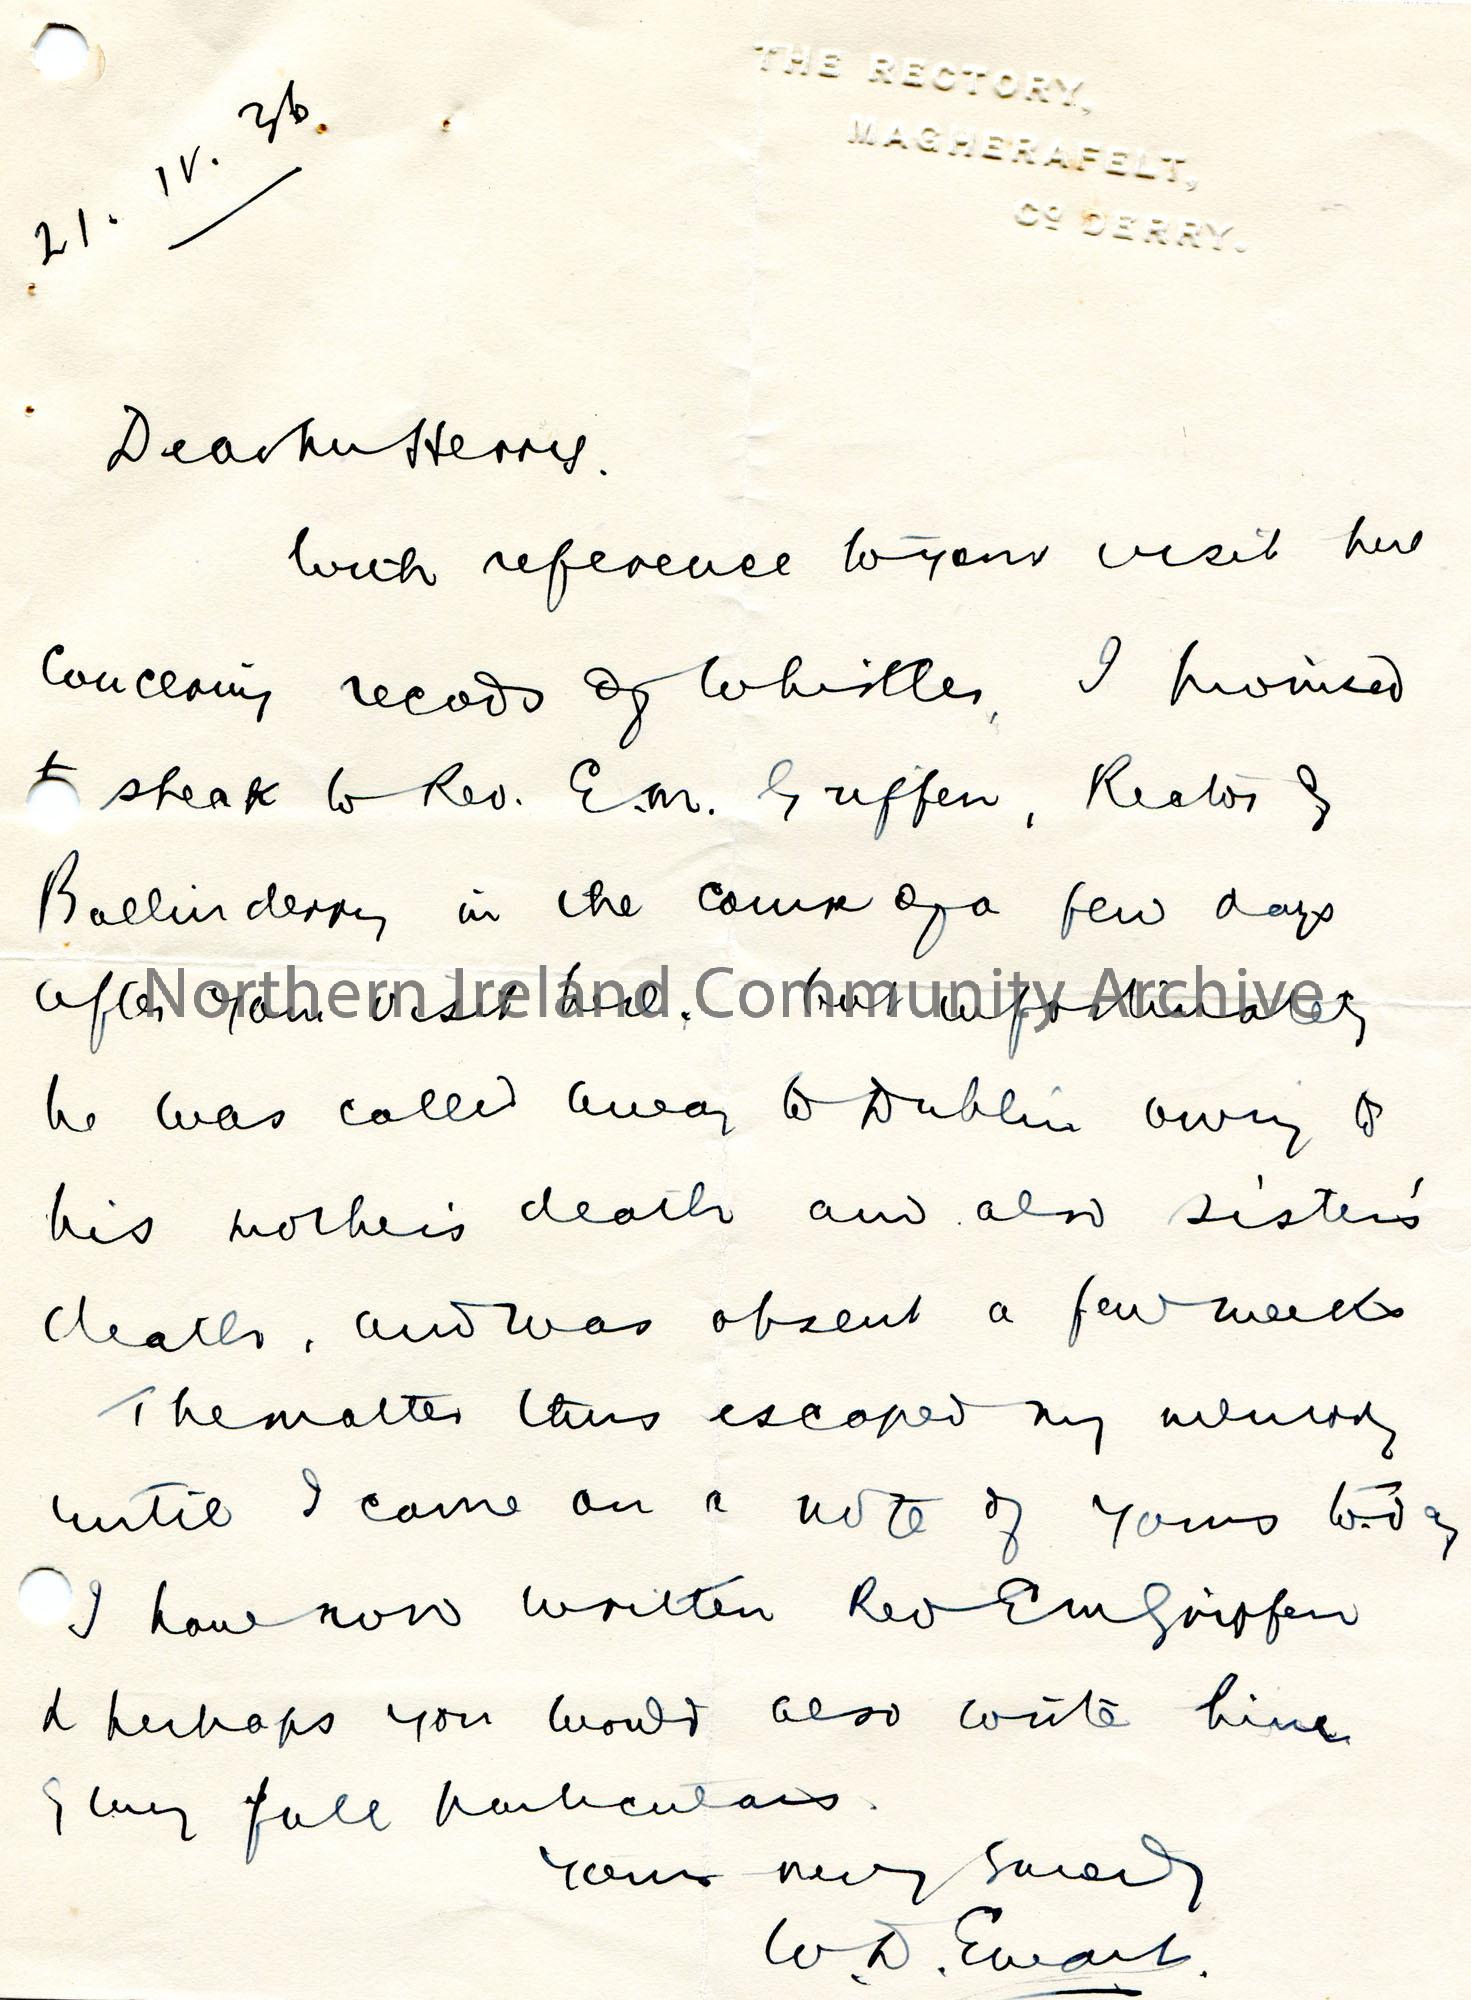 THE RECTORY,
MAGHERAFELT,
Co DERRY.
21. IV. 36.
Dear Mr Henry.
With reference to your visit here
concerning records of Whistler, I promised
to speak to Rev. E.M. Griffin, Rector of
Ballinderry in the course of a few days
after your visit here, but unfortunately
he was called away to Dublin owing to
his mother's death and also sister's
death, and was absent a few weeks
The matter thus escaped my memory
until I came on a note of yours to-day
I have now written Rev E M Griffin
& perhaps you would also write him
giving full particulars.
Yours very sincerely
W. D. Ewart.
Northern Ireland Community Archive